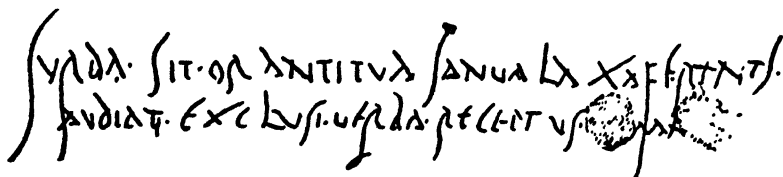 SVRDA · SIT · ORANTI TVA IANVA LAXA FERENTI
AVDIAT · EXCLVSI · VERBA · RECEPTVS ·